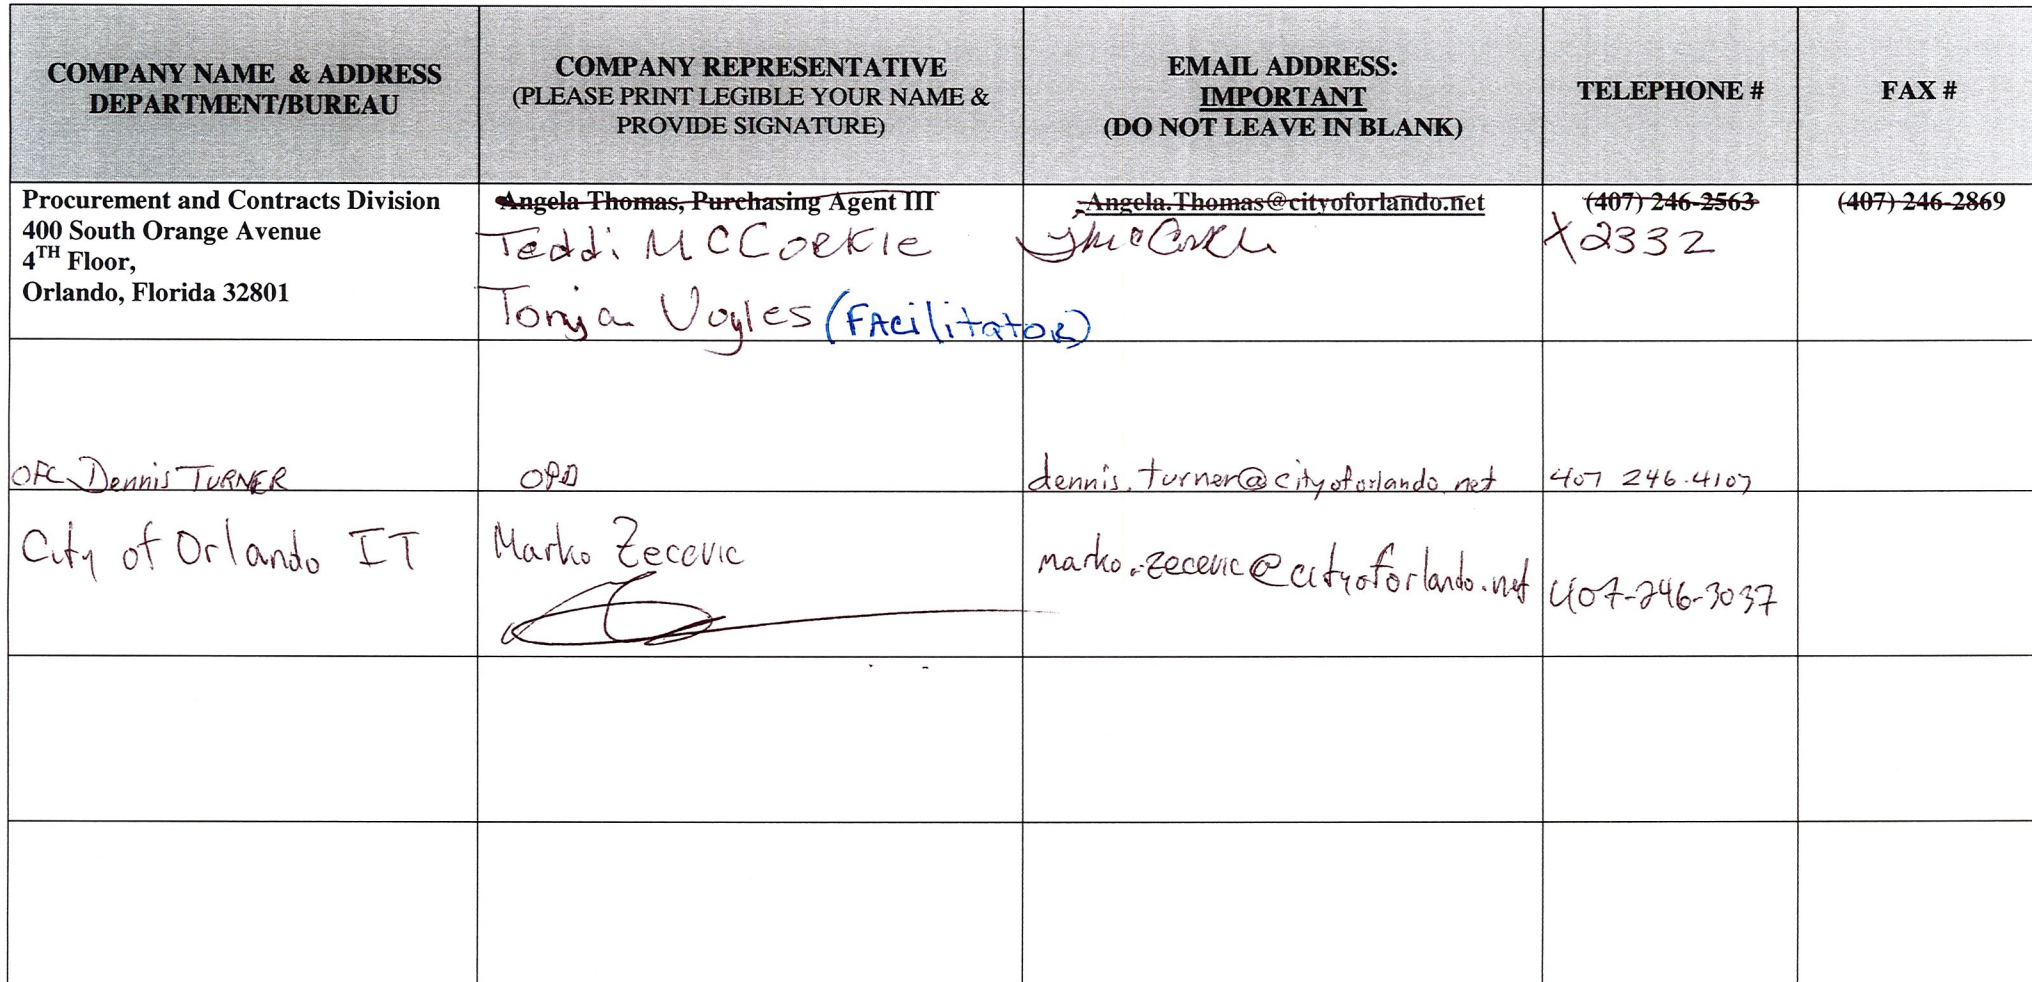 COMPANY NAME & ADDRESS
DEPARTMENT/BUREAU
COMPANY REPRESENTATIVE
(PLEASE PRINT LEGIBLE YOUR NAME &
PROVIDE SIGNATURE)
EMAIL ADDRESS:
IMPORTANT
(DO NOT LEAVE IN BLANK)
TELEPHONE #
FAX #
Procurement and Contracts Division
400 South Orange Avenue
4TH Floor,
Orlando, Florida 32801
Angela Thomas, Purchasing Agent III
Teddi McCorkle
Tonja Voyles (Facilitator)
Angela.Thomas@cityoforlando.net
(407) 246-2563
X2332
(407) 246-2869
OFC Dennis TURNER
OPD
dennis.turner@cityoforlando.net
407 246.4107
City of Orlando IT
Marko Zecevic
marko.zecevic@cityoforlando.net
407-246-3037